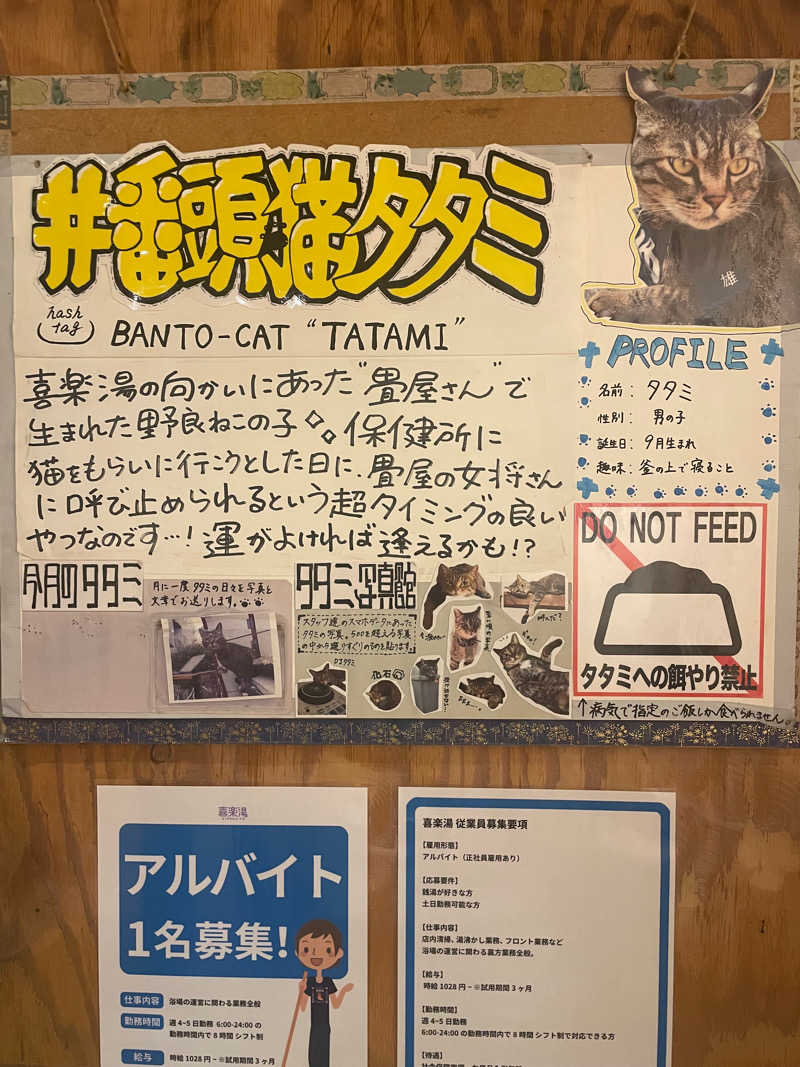 #番頭猫タタミ
hash tag
BANTO-CAT "TATAMI"
喜楽湯の向かいにあった"畳屋さん"で
生まれた野良ねこの子 保健所に
猫をもらいに行こうとした日に、畳屋の女将さん
に呼び止められるという超タイミングの良い
やつなのです…!運がよければ逢えるかも!?
雄
PROFILE
名前:タタミ
性別:男の子
誕生日:9月生まれ
趣味:釜の上で寝ること
DO NOT FEED
タタミへの餌やり禁止
↑病気で指定のご飯しか食べられません。
今月のタタミ
月に一度タタミの日々を写真と
文字でお送りします。
タタミ写真館
スタッフ達のスマホデータにあった
タタミの写真。500を超える写真
の中から選りすぐりのものを貼ります。
DJタタミ
化石
喜楽湯
アルバイト
1名募集!
仕事内容 浴場の運営に関わる業務全般
勤務時間 週4~5日勤務 6:00-24:00の
勤務時間内で8時間シフト制
給与 時給1028円~※試用期間3ヶ月
喜楽湯 従業員募集要項
【雇用形態】
アルバイト(正社員雇用あり)
【応募要件】
銭湯が好きな方
土日勤務可能な方
【仕事内容】
店内清掃、湯沸かし業務、フロント業務など
浴場の運営に関わる裏方業務全般。
【給与】
時給1028円~※試用期間3ヶ月
【勤務時間】
週4~5日勤務
6:00-24:00の勤務時間内で8時間シフト制で対応できる方
【待遇】